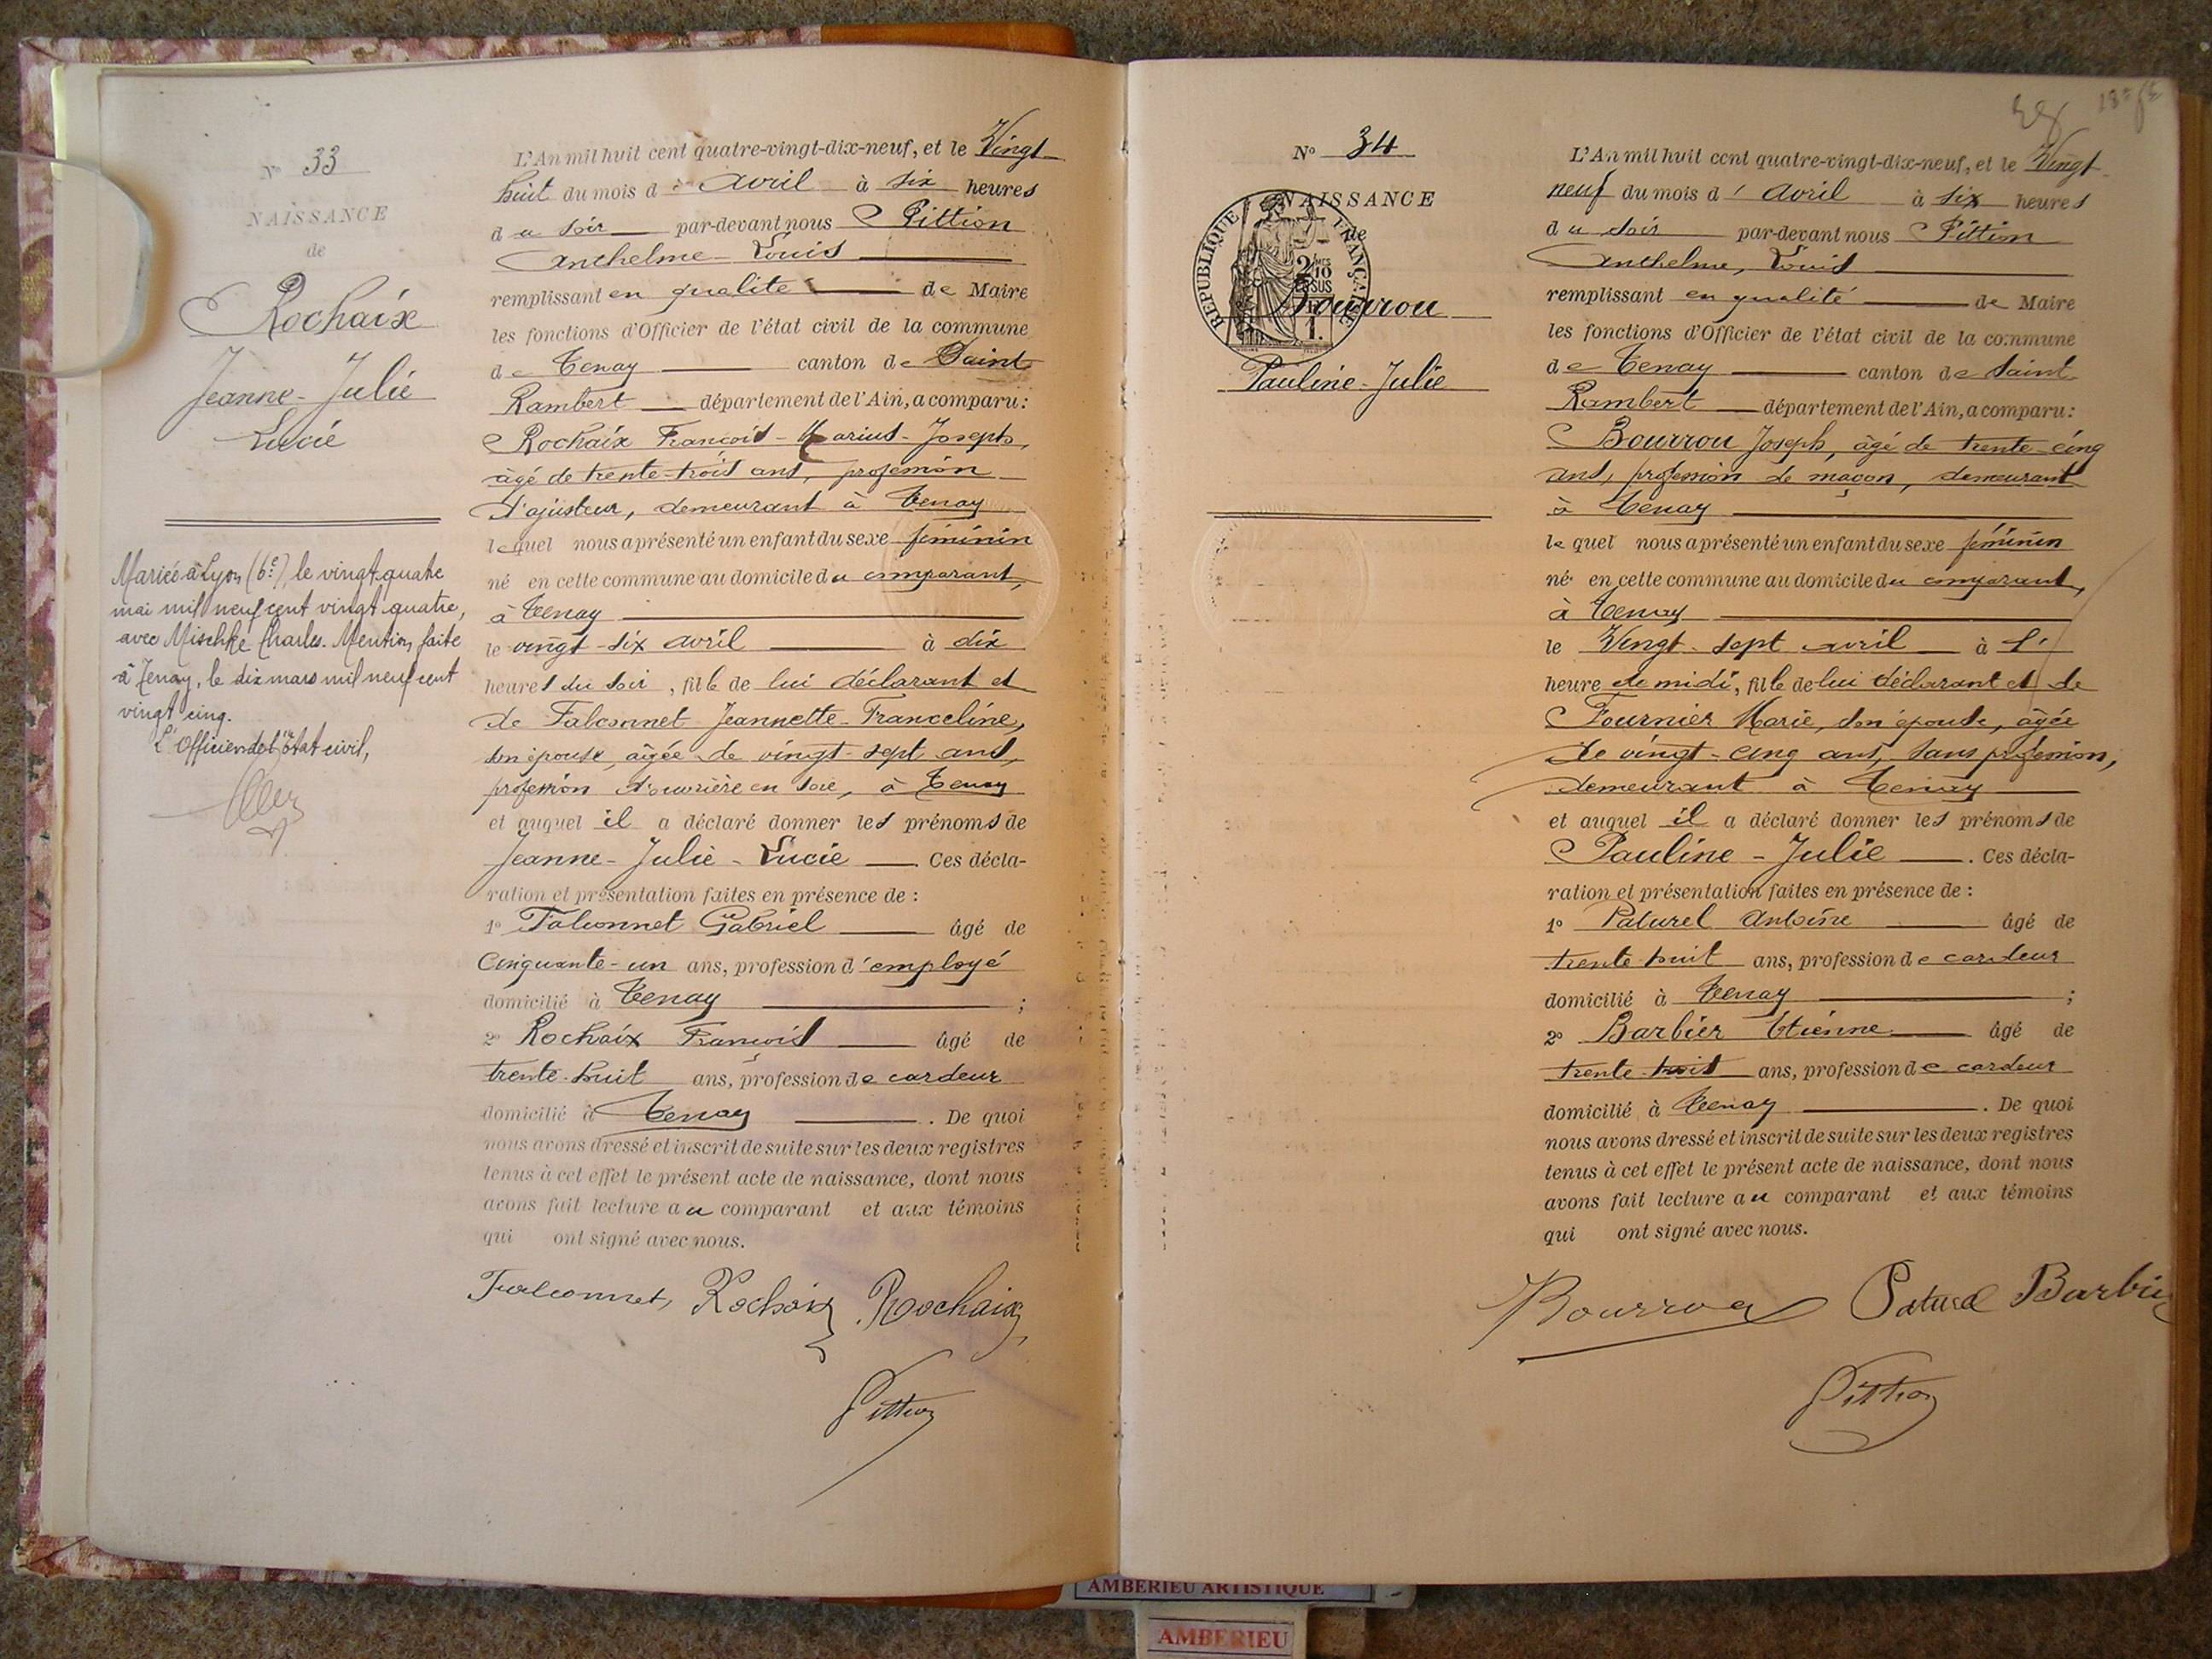 N° 33
NAISSANCE
de
Rochaix
Jeanne-Julie
Lucie
Mariée à Lyon (6e), le vingt-quatre
mai mil neuf cent vingt quatre,
avec Mischke Charles. Mention faite
à Tenay, le dix mars mil neuf cent
vingt cinq.
L'Officier de l'état civil,
L'An mil huit cent quatre-vingt-dix-neuf, et le Vingt
huit du mois d'avril à six heures
du soir par-devant nous Pittion
Anthelme-Louis
remplissant en qualité de Maire
les fonctions d'Officier de l'état civil de la commune
de Tenay canton de Saint
Rambert département de l'Ain, a comparu:
Rochaix François-Marius-Joseph,
âgé de trente-trois ans, profession
d'ajusteur, demeurant à Tenay
lequel nous a présenté un enfant du sexe féminin
né en cette commune au domicile du comparant,
à Tenay
le vingt-six avril à dix
heures du soir, fille de lui déclarant et
de Falconnet Jeannette-Franceline,
son épouse, âgée de vingt-sept ans,
profession d'ouvrière en soie, à Tenay
et auquel il a déclaré donner les prénoms de
Jeanne-Julie-Lucie. Ces décla-
ration et présentation faites en présence de :
1° Falconnet Gabriel âgé de
Cinquante-un ans, profession d'employé
domicilié à Tenay ;
2° Rochaix François âgé de
trente-huit ans, profession de cardeur
domicilié à Tenay. De quoi
nous avons dressé et inscrit de suite sur les deux registres
tenus à cet effet le présent acte de naissance, dont nous
avons fait lecture au comparant et aux témoins
qui ont signé avec nous.
Falconnet, Rochaix Rochaix
Pittion
N° 34
NAISSANCE
de
RÉPUBLIQUE FRANÇAISE
2/10 MES
EN SUS
1.
Bourrou
Pauline-Julie
L'An mil huit cent quatre-vingt-dix-neuf, et le Vingt
neuf du mois d'avril à six heures
du soir par-devant nous Pittion
Anthelme, Louis
remplissant en qualité de Maire
les fonctions d'Officier de l'état civil de la commune
de Tenay canton de Saint
Rambert département de l'Ain, a comparu:
Bourrou Joseph, âgé de trente-cinq
ans, profession de maçon, demeurant
à Tenay
lequel nous a présenté un enfant du sexe féminin
né en cette commune au domicile du comparant,
à Tenay
le Vingt-sept avril à l'
heure de midi, fille de lui déclarant et de
Fournier Marie, son épouse, âgée
de vingt-cinq ans, sans profession,
demeurant à Tenay
et auquel il a déclaré donner les prénoms de
Pauline-Julie. Ces décla-
ration et présentation faites en présence de :
1° Paturel Antoine âgé de
trente huit ans, profession de cardeur
domicilié à Tenay ;
2° Barbier Etienne âgé de
trente-huit ans, profession de cardeur
domicilié à Tenay. De quoi
nous avons dressé et inscrit de suite sur les deux registres
tenus à cet effet le présent acte de naissance, dont nous
avons fait lecture au comparant et aux témoins
qui ont signé avec nous.
Bourrou Paturel Barbier
Pittion
AMBERIEU ARTISTIQUE
AMBERIEU